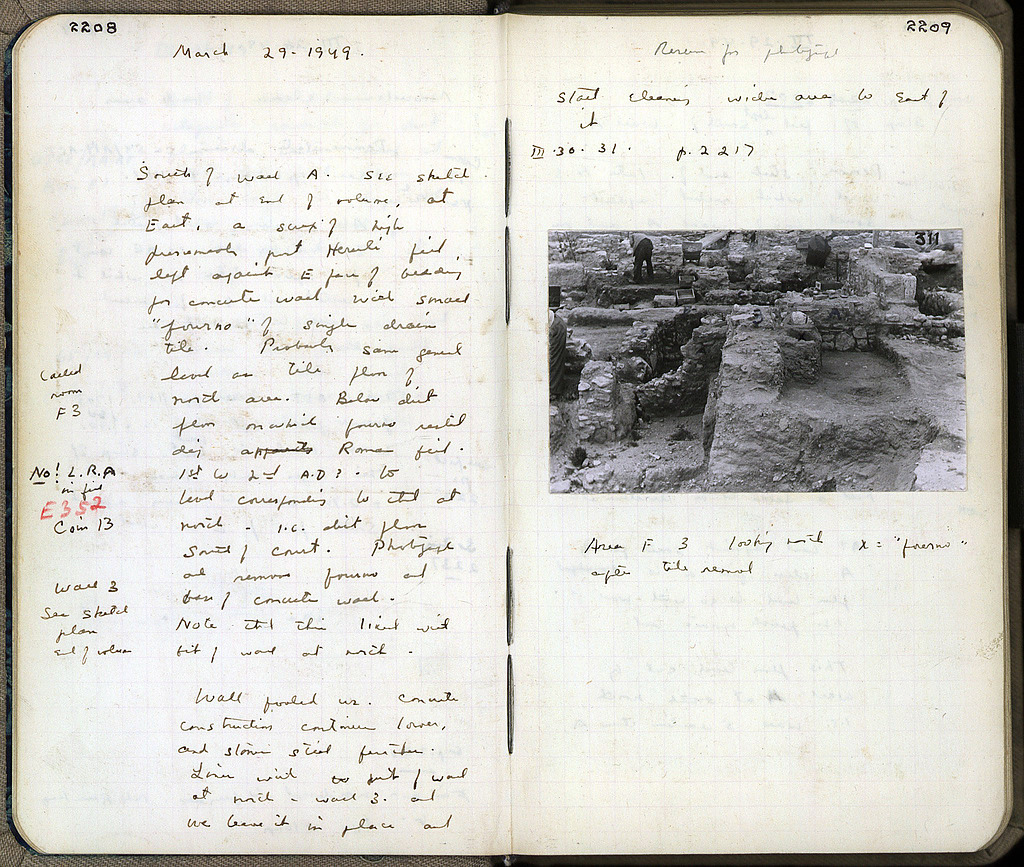 2208
March 29-1949.
South of wall A. See sketch
plan at end of volume, at
East, a scrap of high
post Herulian fill
left against E face of bedding
for concrete wall with small
"fourno" of single drain
tile. Probably same general
level as tile floor of
north area. Below dirt
floor on which fourno rested
dig apparently Roman fill.
1st to 2nd A.D? - to
level corresponding to that at
north - i.e. dirt floor
South of court. Photograph
and remove fourno and
base of concrete wall.
Note that this lined with
bit of wall at north.
Wall fooled us. Concrete
construction continues lower,
and stones still further.
Lines with part of wall
at north - wall 3. and
we leave it in place and
Called
room
F3
No! L.R.A.
in fill
E352
Coin 13
Wall 3
See sketch
plan
End of volume
2209
Remove for photograph
Start cleaning wider area to East of
it
III.30.31. p.2217
311
Area F 3 looking north x = "fourno"
after tile removal